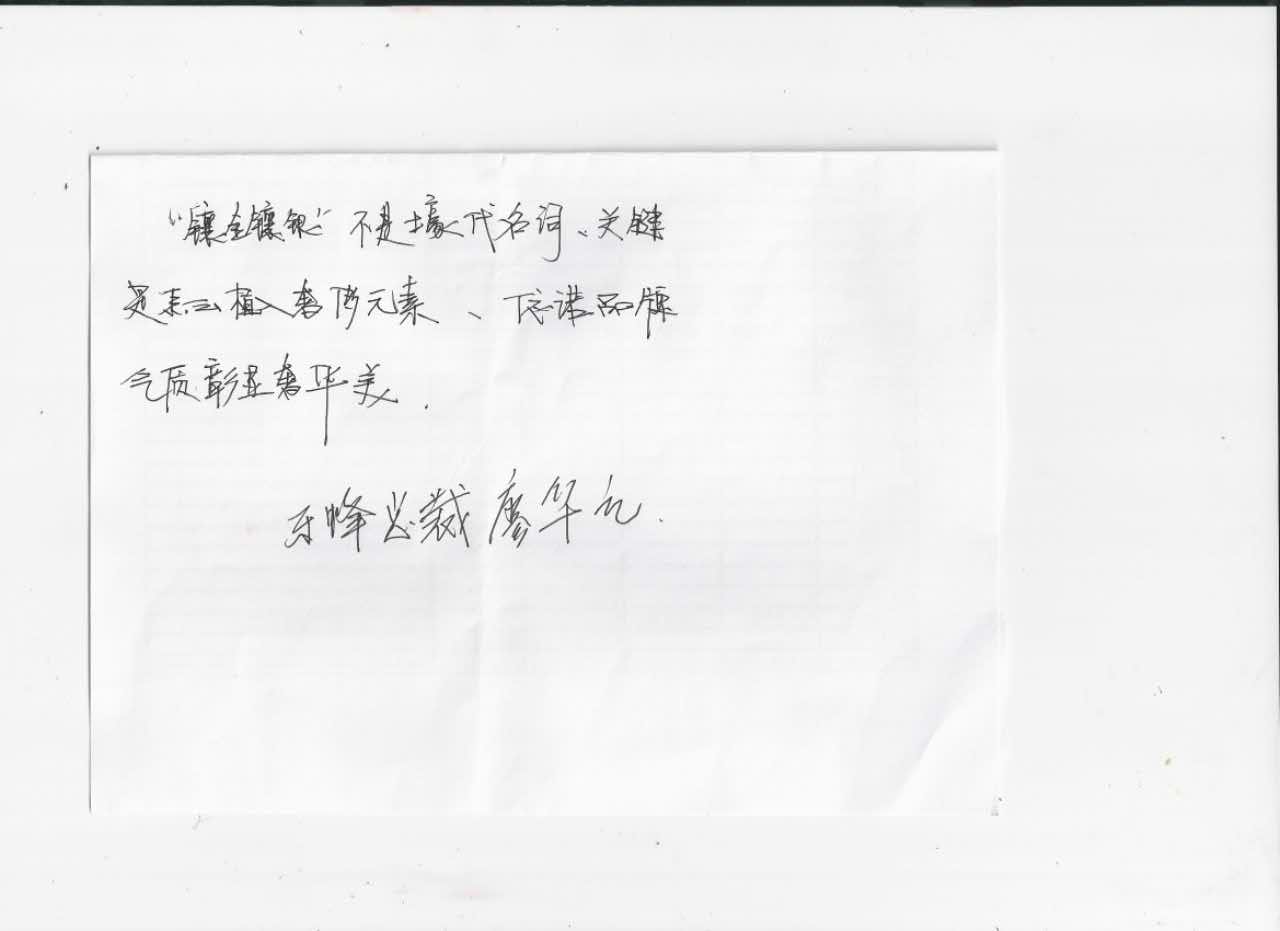 “镶金镶银”不是壕代名词、关键
是怎么植入奢侈元素、依诺品牌
气质彰显奢华美.
东峰总裁廖华